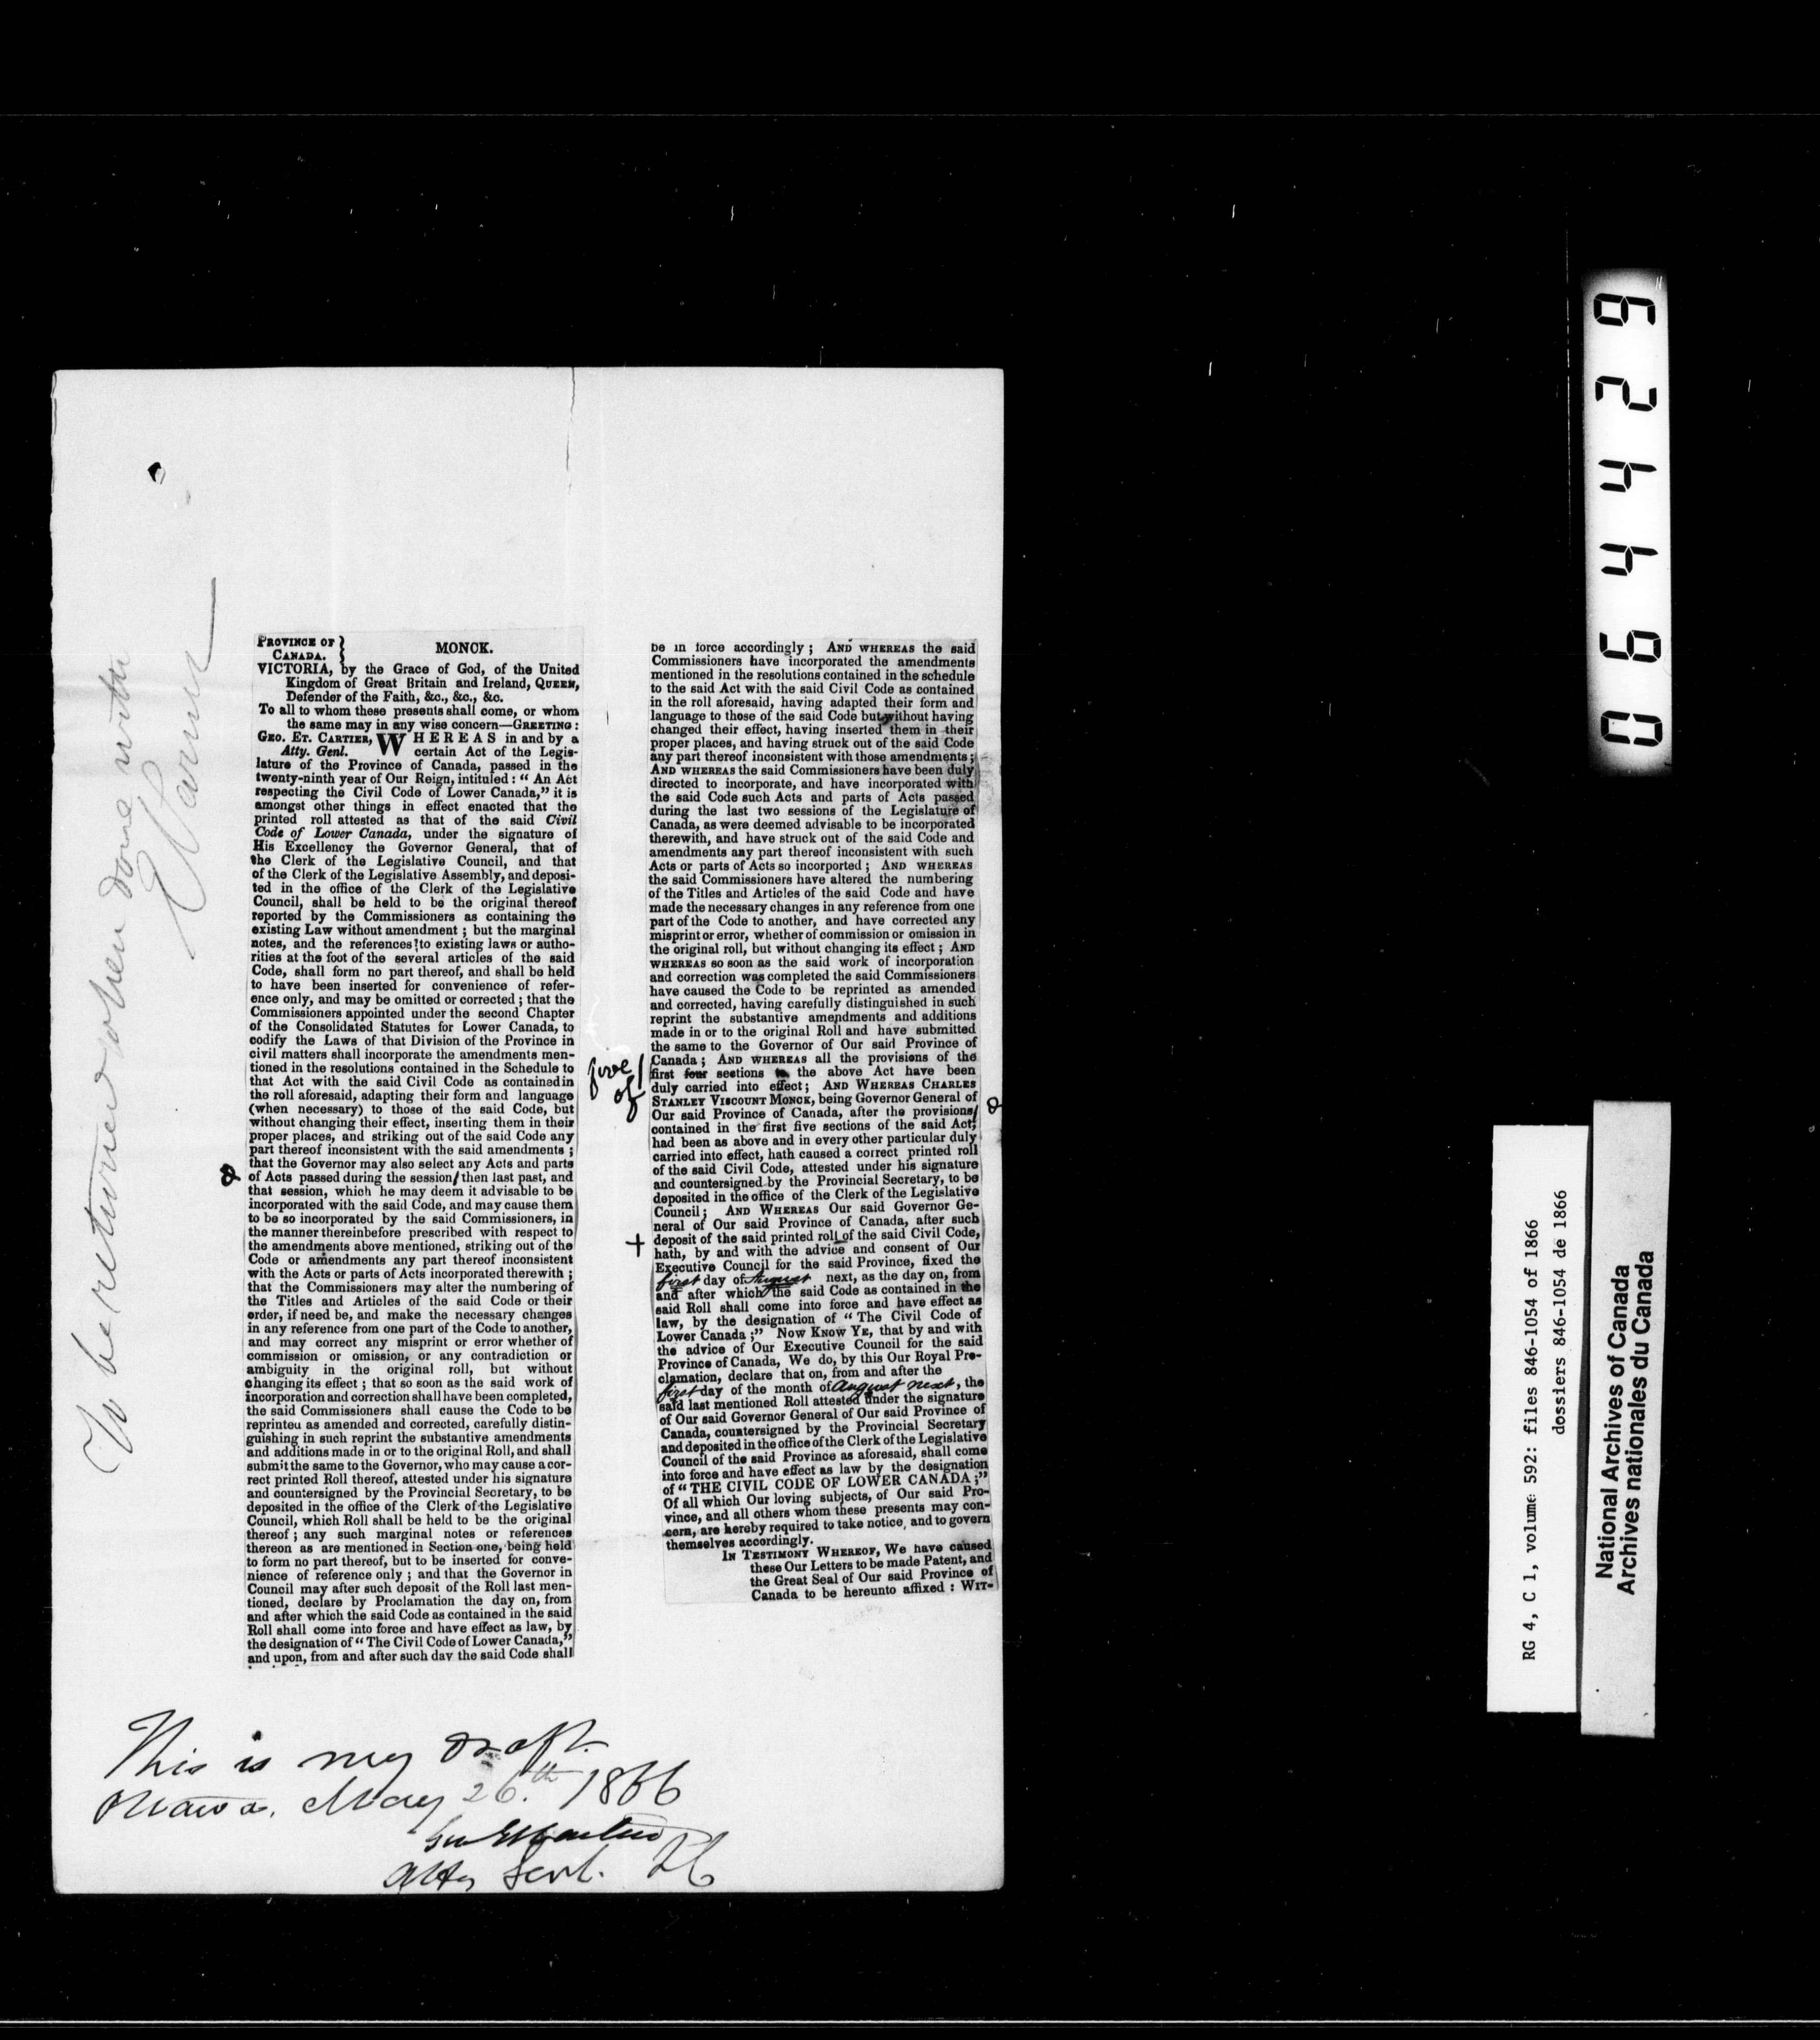 To be returned when done with
PROVINCE OF
CANADA.
MONCK.
VICTORIA, by the Grace of God, of the United
Kingdom of Great Britain and Ireland, QUEEN,
Defender of the Faith, &c., &c., &c.
To all to whom these presents shall come, or whom
the same may in any wise concern—GREETING:
GEO. ET. CARTIER, WHEREAS in and by a
Atty. Genl. certain Act of the Legis-
lature of the Province of Canada, passed in the
twenty-ninth year of Our Reign, intituled: "An Act
respecting the Civil Code of Lower Canada," it is
amongst other things in effect enacted that the
printed roll attested as that of the said Civil
Code of Lower Canada, under the signature of
His Excellency the Governor General, that of
the Clerk of the Legislative Council, and that
of the Clerk of the Legislative Assembly, and deposi-
ted in the office of the Clerk of the Legislative
Council, shall be held to be the original thereof
reported by the Commissioners as containing the
existing Law without amendment; but the marginal
notes, and the references to existing laws or autho-
rities at the foot of the several articles of the said
Code, shall form no part thereof, and shall be held
to have been inserted for convenience of refer-
ence only, and may be omitted or corrected; that the
Commissioners appointed under the second Chapter
of the Consolidated Statutes for Lower Canada, to
codify the Laws of that Division of the Province in
civil matters shall incorporate the amendments men-
tioned in the resolutions contained in the Schedule to
that Act with the said Civil Code as contained in
the roll aforesaid, adapting their form and language
(when necessary) to those of the said Code, but
without changing their effect, inserting them in their
proper places, and striking out of the said Code any
part thereof inconsistent with the said amendments;
that the Governor may also select any Acts and parts
of Acts passed during the session then last past, and
that session, which he may deem it advisable to be
incorporated with the said Code, and may cause them
to be so incorporated by the said Commissioners, in
the manner thereinbefore prescribed with respect to
the amendments above mentioned, striking out of the
Code or amendments any part thereof inconsistent
with the Acts or parts of Acts incorporated therewith;
that the Commissioners may alter the numbering of
the Titles and Articles of the said Code or their
order, if need be, and make the necessary changes
in any reference from one part of the Code to another,
and may correct any misprint or error whether of
commission or omission, or any contradiction or
ambiguity in the original roll, but without
changing its effect; that so soon as the said work of
incorporation and correction shall have been completed,
the said Commissioners shall cause the Code to be
reprinted as amended and corrected, carefully distin-
guishing in such reprint the substantive amendments
and additions made in or to the original Roll, and shall
submit the same to the Governor, who may cause a cor-
rect printed Roll thereof, attested under his signature
and countersigned by the Provincial Secretary, to be
deposited in the office of the Clerk of the Legislative
Council, which Roll shall be held to be the original
thereof; any such marginal notes or references
thereon as are mentioned in Section one, being held
to form no part thereof, but to be inserted for conve-
nience of reference only; and that the Governor in
Council may after such deposit of the Roll last men-
tioned, declare by Proclamation the day on, from
and after which the said Code as contained in the said
Roll shall come into force and have effect as law, by
the designation of "The Civil Code of Lower Canada,"
and upon, from and after such day the said Code shall
be in force accordingly; AND WHEREAS the said
Commissioners have incorporated the amendments
mentioned in the resolutions contained in the schedule
to the said Act with the said Civil Code as contained
in the roll aforesaid, having adapted their form and
language to those of the said Code but without having
changed their effect, having inserted them in their
proper places, and having struck out of the said Code
any part thereof inconsistent with those amendments;
AND WHEREAS the said Commissioners have been duly
directed to incorporate, and have incorporated with
the said Code such Acts and parts of Acts passed
during the last two sessions of the Legislature of
Canada, as were deemed advisable to be incorporated
therewith, and have struck out of the said Code and
amendments any part thereof inconsistent with such
Acts or parts of Acts so incorported; AND WHEREAS
the said Commissioners have altered the numbering
of the Titles and Articles of the said Code and have
made the necessary changes in any reference from one
part of the Code to another, and have corrected any
misprint or error, whether of commission or omission in
the original roll, but without changing its effect; AND
WHEREAS so soon as the said work of incorporation
and correction was completed the said Commissioners
have caused the Code to be reprinted as amended
and corrected, having carefully distinguished in such
reprint the substantive amendments and additions
made in or to the original Roll and have submitted
the same to the Governor of Our said Province of
Canada; AND WHEREAS all the provisions of the
five/
first four sections to the above Act have been
of
duly carried into effect; AND WHEREAS CHARLES
STANLEY VISCOUNT MONCK, being Governor General of
Our said Province of Canada, after the provisions
contained in the first five sections of the said Act,
had been as above and in every other particular duly
carried into effect, hath caused a correct printed roll
of the said Civil Code, attested under his signature
and countersigned by the Provincial Secretary, to be
deposited in the office of the Clerk of the Legislative
Council; AND WHEREAS Our said Governor Ge-
neral of Our said Province of Canada, after such
+ deposit of the said printed roll of the said Civil Code,
hath, by and with the advice and consent of Our
Executive Council for the said Province, fixed the
first day of August next, as the day on, from
and after which the said Code as contained in the
said Roll shall come into force and have effect as
law, by the designation of "The Civil Code of
Lower Canada;" NOW KNOW YE, that by and with
the advice of Our Executive Council for the said
Province of Canada, We do, by this Our Royal Pro-
clamation, declare that on, from and after the
first day of the month of August next, the
said last mentioned Roll attested under the signature
of Our said Governor General of Our said Province of
Canada, countersigned by the Provincial Secretary
and deposited in the office of the Clerk of the Legislative
Council of the said Province as aforesaid, shall come
into force and have effect as law by the designation
of "THE CIVIL CODE OF LOWER CANADA;"
Of all which Our loving subjects, of Our said Pro-
vince, and all others whom these presents may con-
cern, are hereby required to take notice, and to govern
themselves accordingly.
IN TESTIMONY WHEREOF, We have caused
these Our Letters to be made Patent, and
the Great Seal of Our said Province of
Canada to be hereunto affixed: WIT-
This is my draft.
Ottawa, May 26.th 1866
Geo E Cartier
Atty Genl. LC
064429
RG 4, C 1, volume 592: files 846-1054 of 1866
dossiers 846-1054 de 1866
National Archives of Canada
Archives nationales du Canada